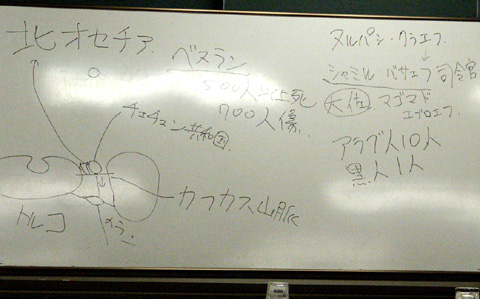 北オセチア
ベスラン
500人以上死
700人傷
チェチェン共和国
トルコ
イラン
カフカス山脈
ヌルパシ・クラエフ
シャミル バサエフ 司令官
大佐 マゴマド
エブロエフ
アラブ人10人
黒人1人